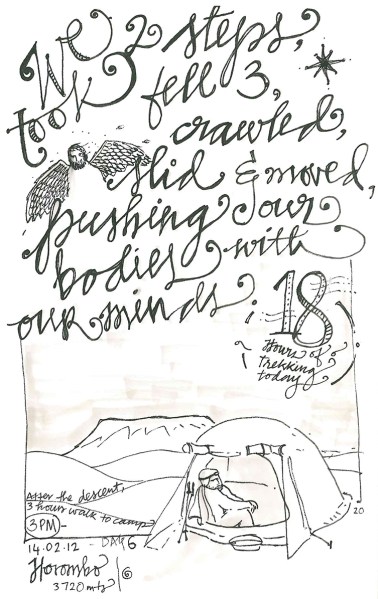 We took 2 steps,
fell 3,
crawled,
slid & moved,
pushing our
bodies with
our minds.
18
Hours of
Trekking
today
After the descent,
3 hour walk to camp
3PM-
14.02.12 DAY 6
Horombo
3720 mts
20